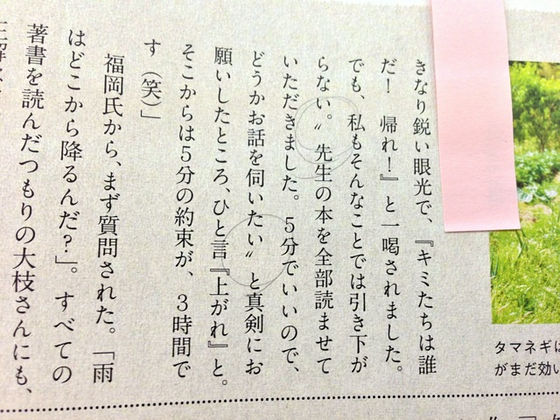 きなり鋭い眼光で、『キミたちは誰
だ！　帰れ！』と一喝されました。
でも、私もそんなことでは引き下が
らない。〝先生の本を全部読ませて
いただきました。5分でいいので、
どうかお話を伺いたい〟と真剣にお
願いしたところ、ひと言『上がれ』と。
そこからは5分の約束が、3時間で
す（笑）」
　福岡氏から、まず質問された。「雨
はどこから降るんだ？」。すべての
著書を読んだつもりの大枝さんにも、
タマネギは
がまだ効い